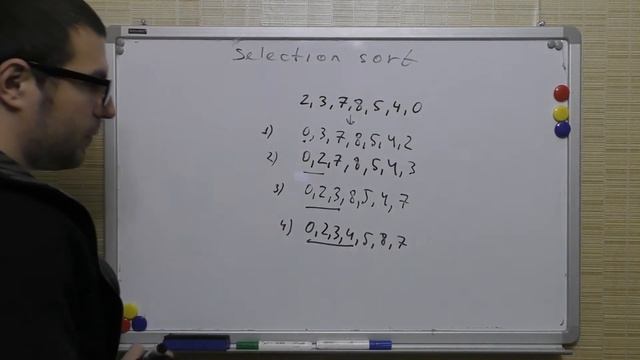 Selection sort
2, 3, 7, 8, 5, 4, 0
↓
1) 0, 3, 7, 8, 5, 4, 2
2) 0, 2, 7, 8, 5, 4, 3
3) 0, 2, 3, 8, 5, 4, 7
4) 0, 2, 3, 4, 5, 8, 7